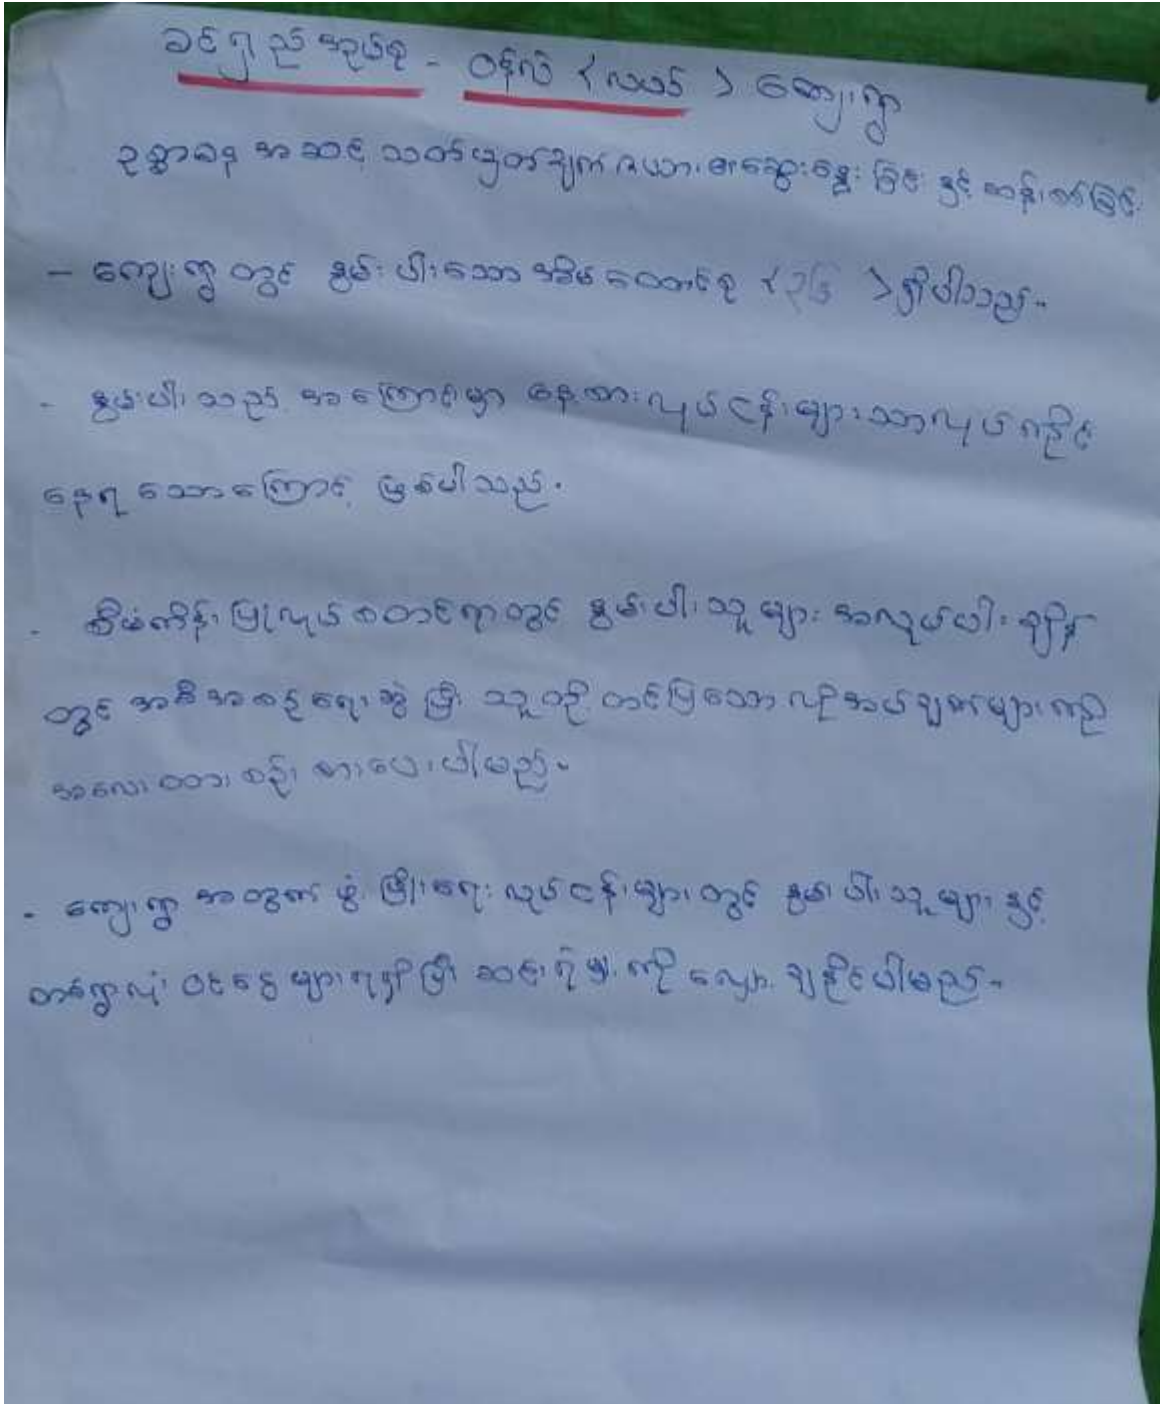 ခင်ရှည်အုပ်စု - ဝန်လိ < လဟပ် > ကျေးရွာ
ဥစ္စာဓန အဆင့် သတ်မှတ်ချက်ဇယားအားဆွေးနွေးခြင်း နှင့် ဆန်းစစ်ခြင်း
- ကျေးရွာတွင် နွမ်းပါးသော အိမ်ထောင်စု < ၃၆ > ရှိပါသည်။
- နွမ်းပါးသည့် အကြောင်းမှာ နေ့စားလုပ်ငန်းများသာလုပ်ကိုင်
နေရသောကြောင့် ဖြစ်ပါသည်။
- စီမံကိန်းပြုလုပ်ဆောင်ရာတွင် နွမ်းပါးသူများ အလုပ်ပါးချိန်
တွင် အစီအစဉ်ရေးဆွဲပြီး သူတို့ တင်ပြသော လိုအပ်ချက်များကို
အလေးထားစဉ်းစားပေးပါမည်။
- ကျေးရွာအတွက် ဖွံ့ဖြိုးရေးလုပ်ငန်းများတွင် နွမ်းပါးသူများနှင့်
တစ်ရွာလုံး ဝင်ငွေများရရှိပြီး ဆင်းရဲမှု့ကို လျှော့ချနိုင်ပါမည်။